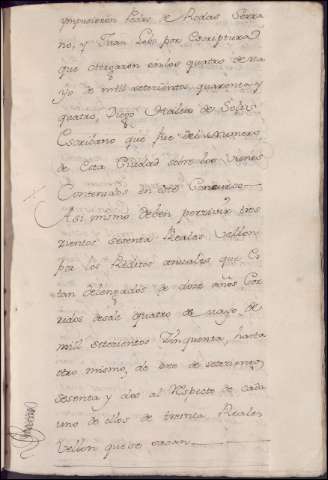 impusieron Pedro de Rodas Serra
no, y Juan Lobo por Escriptura
que otorgaron en los quatro de ma
yo de mill setecientos quarenta y
quatro, Diego Matheo de
Escribano que fue del Numero
de Esta Ciudad sobre los Vienes
Contenidos en este Concurso
Asi mismo deben percivir tres
cientos sesenta Reales Vellon
por los Reditos anuales que Es
tan debengados de doze años Cor
ridos desde quatro de mayo de
mill setecientos Cinquenta, hasta
otro mismo, de este de setecientos
sesenta y dos al Respecto de cada
uno de ellos de treinta Reales
Vellon